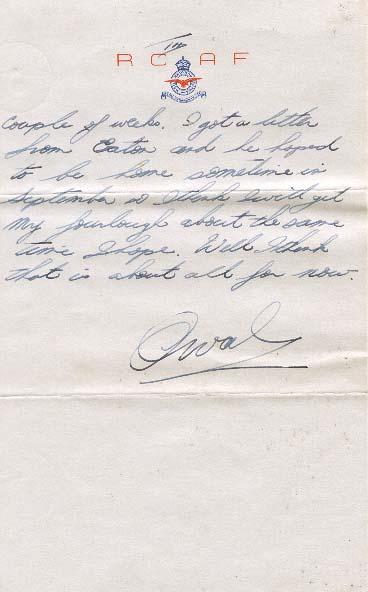 RCAF
couple of weeks. I got a letter
from Eaton and he hoped
to be home sometime in
September so I think I will get
my fourlough about the same
time I hope. Well I think
that is about all for now.
Orval